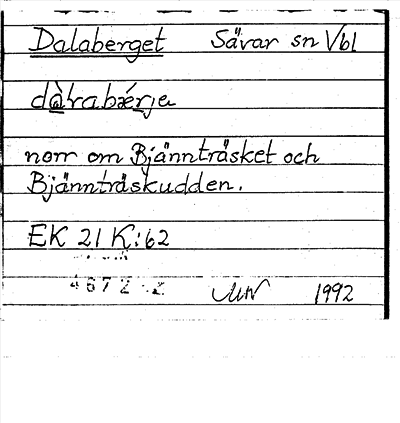 Dalaberget Sävar sn Vbl
norr om Bjännträsket och
Bjännträskudden.
EK 21 K:62
4672
1992